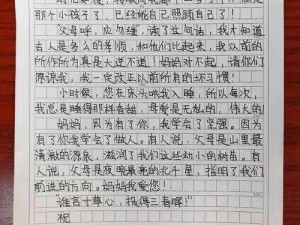 那个小孩子了，已经能自己照顾自己了！
“父母呼，应勿缓”读了这一句话，我才知道
古人是多么的孝顺，和他们比起来，我以前的
所作所为真是大逆不道！妈妈对不起，请你们
原谅我，我一定改正以前所有的坏习惯！
小时候，您在床头哄我入睡，所以每次，
我总是睡得那样香甜，母爱是无私的，伟大的
妈妈，因为有了你，我学会了坚强。因为
有了你我学会了做人。有人说，父母是山里最
清澈的源泉，滋润了我们这些幼小的树苗。有人
说，父母是夜晚最亮的北斗星，指明了我们
前进的方向。妈妈我爱您！
谁言寸草心，报得三春晖！”
祝